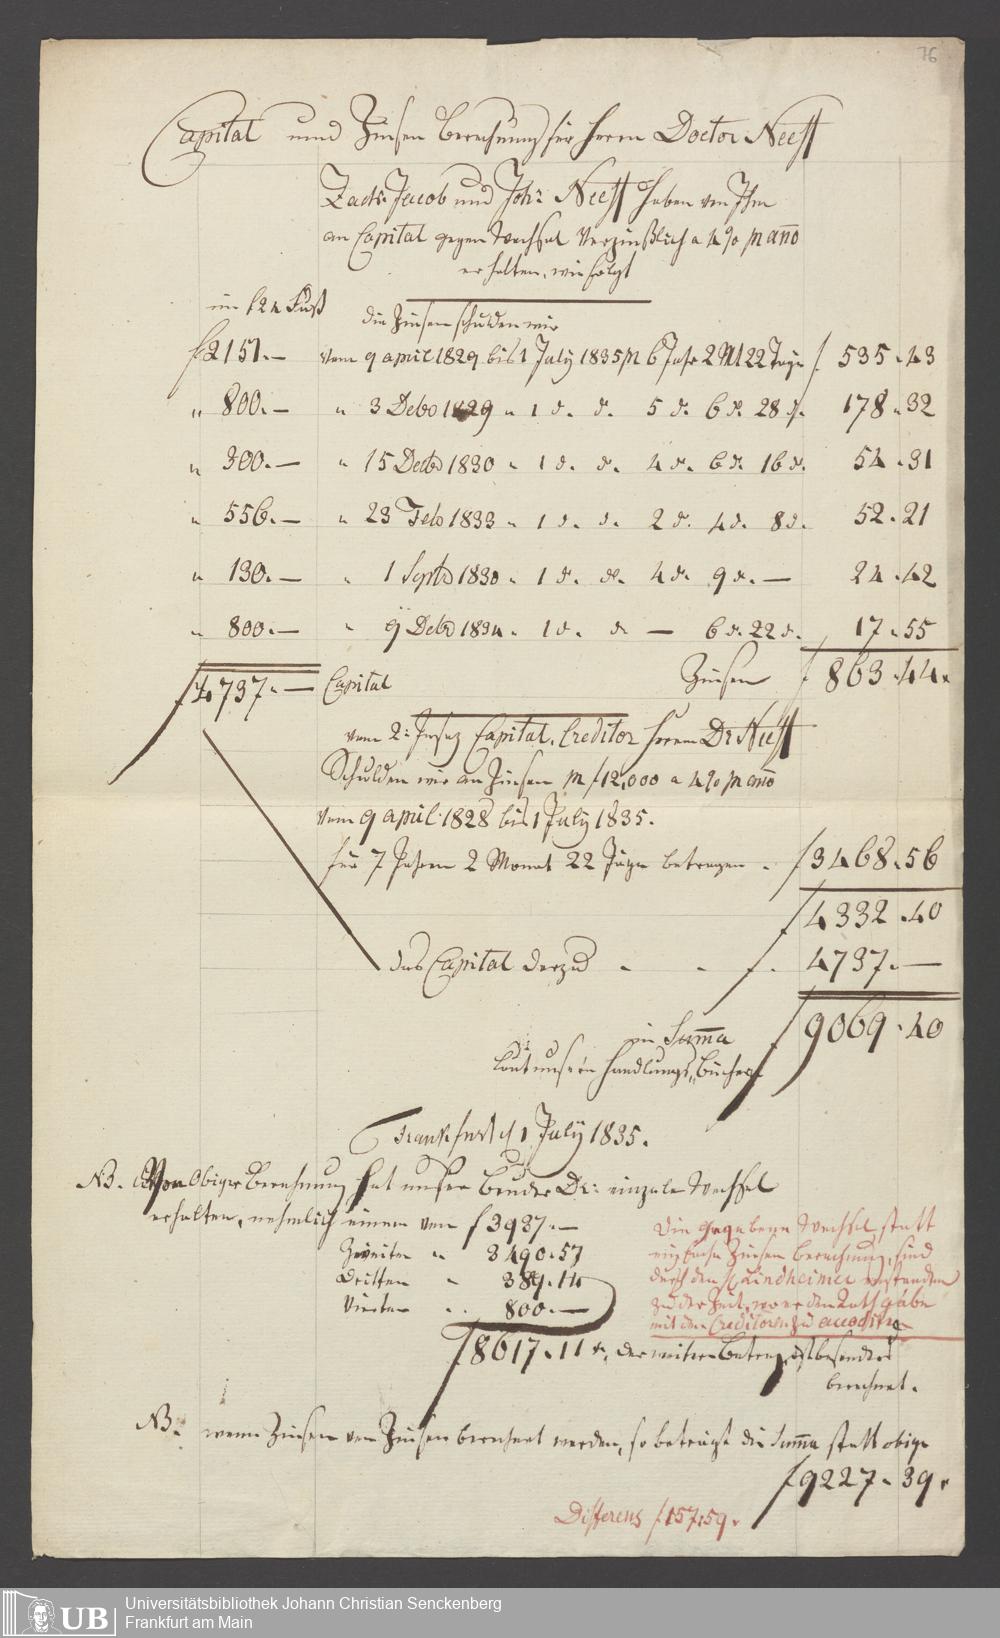 76
Capital und Zinsen Berechnung für Herrn Doctor Neeff
Zach: Jacob und Joh: Neeff haben von Ihm
an Capital gegen Wechsel Verzinßlich a 4 % p anno
erhalten, wie folgt
im f 24 Fuß
die Zinsen schulden wir
f 2151.— vom 9 april 1829 bis 1 July 1835 p 6 Jahr 2 Mt 22 Tage f 535.43
" 800.— " 3 Debo 1829 " 1 d. d. 5 d. 6 d. 28 d. 178.32
" 300.— " 15 Decbo 1830 " 1 d. d. 4 d. 6 d. 16 d. 54.31
" 556.— " 23 Febo 1833 " 1 d. d. 2 d. 4 d. 8 d. 52.21
" 130.— " 1 Septbo 1830 " 1 d. d. 4 d. 9 d. — 24.42
" 800.— " 9 Debo 1834 " 1 d. d. — 6 d. 22 d. 17.55
f 4737.— Capital Zinsen f 863.44
vom Capital, Creditor Herrn Dr Neeff
Schulden wir an Zinsen p f 12,000 a 4 % p anno
vom 9 april 1828 bis 1 July 1835.
für 7 Jahren 2 Monat 22 Täge betragen . f 3468.56
f 4332.40
das Capital derzu " " f. 4737.—
in Suma f 9069.40
laut unsern Handlungs Bücher
Frankfurt d 1 July 1835.
NB. Von Obiger Berechnung hat unser Bruder Dr: einzele Wechsel
erhalten, nehmlich einen von f 3937.—
Zweiten " 3490.57
Dritten " 389.14
Vierten " 800.—
f 8617.11 x, der weitere Betrag ist besonders
berechnet.
Die gegebene Wechsel statt
einfache Zinsen berechnung, sind
durch den H Lindheimer entstanden
zu der Zeit, wo er den Rath gabe
mit den Creditoren zu
NB. wenn Zinsen von Zinsen berechnet werden, so beträgt die Suma statt obige
f 9227.39 x
Differens f 157.59.
UB
Universitätsbibliothek Johann Christian Senckenberg
Frankfurt am Main